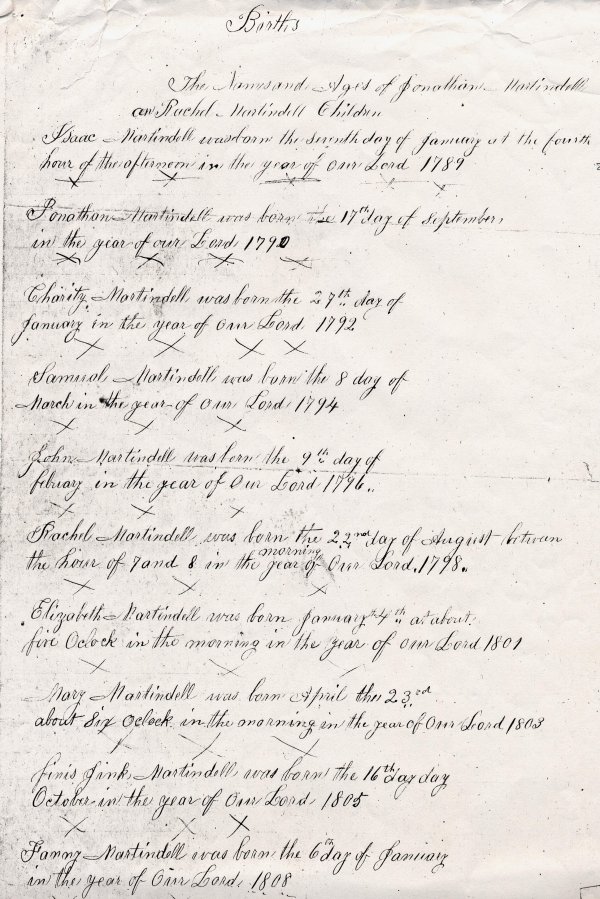 Births
The Names and Ages of Jonathan Martindell
an Rachel Martindell Children
Isaac Martindell was born the seventh day of January at the fourth
hour of the afternoon in the year of Our Lord 1789
Jonathan Martindell was born the 17th day of September,
in the year of our Lord 1790
Charity Martindell was born the 27th day of
January in the year of Our Lord 1792
Samuel Martindell was born the 8 day of
March in the year of Our Lord 1794
John Martindell was born the 9th day of
febuary in the year of Our Lord 1796.
Rachel Martindell was born the 22nd day of August betwen
the hour of 7 and 8 in the morning year of Our Lord. 1798.
Elizabeth Martindell was born January 4th at about
five Oclock in the morning in the year of Our Lord 1801
Mary Martindell was born April the 23rd
about Six Oclock in the morning in the year of Our Lord 1803
finis fink Martindell was born the 16th day day
October in the year of Our Lord 1805
Fanny Martindell was born the 6th day of January
in the year of Our Lord, 1808